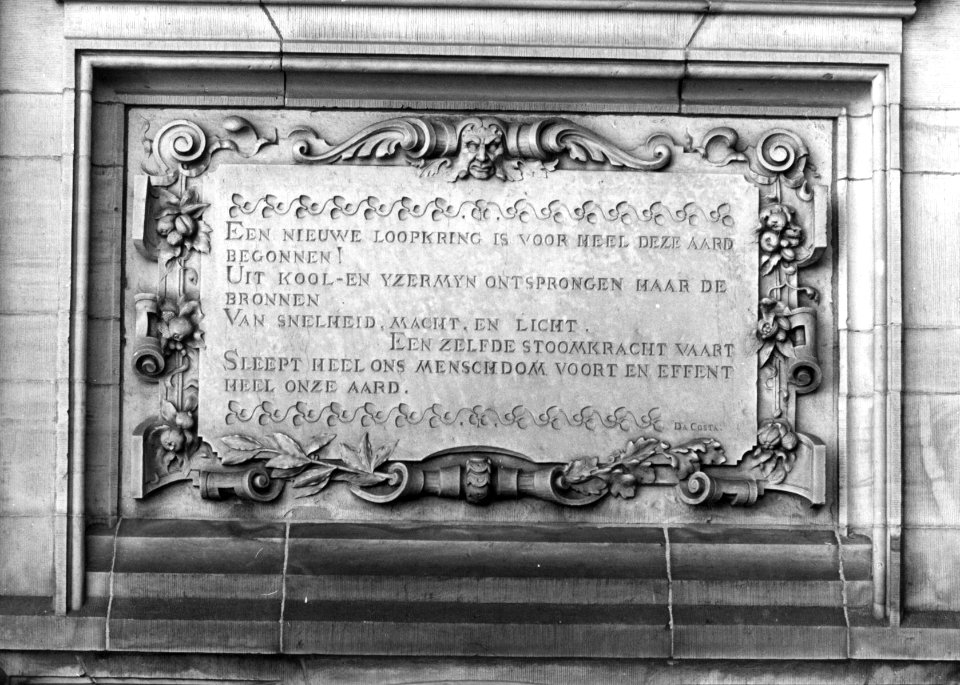 EEN NIEUWE LOOPKRING IS VOOR HEEL DEZE AARD
BEGONNEN!
UIT KOOL-EN YZERMYN ONTSPRONGEN HAAR DE
BRONNEN
VAN SNELHEID, MACHT, EN LICHT.
EEN ZELFDE STOOMKRACHT VAART
SLEEPT HEEL ONS MENSCHDOM VOORT EN EFFENT
HEEL ONZE AARD.
DA COSTA.